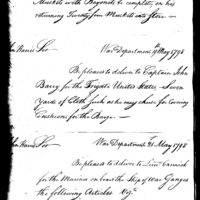 Muskets with Bayonets Complete, on his
returning Twenty four Muskets into Store.
John Harris Sir War Department 19th May 1798
Be pleased to deliver to Captain John
Barry for the Frigate United States Seven
Yards of Cloth such as may chuse for covering
Cushions for the Barge.
John Harris Sir War Departmt. 21 May 1798
Be pleased to deliver to Lieut.
for the Marines on board the Ship of War Ganges
the following Articles Viz.